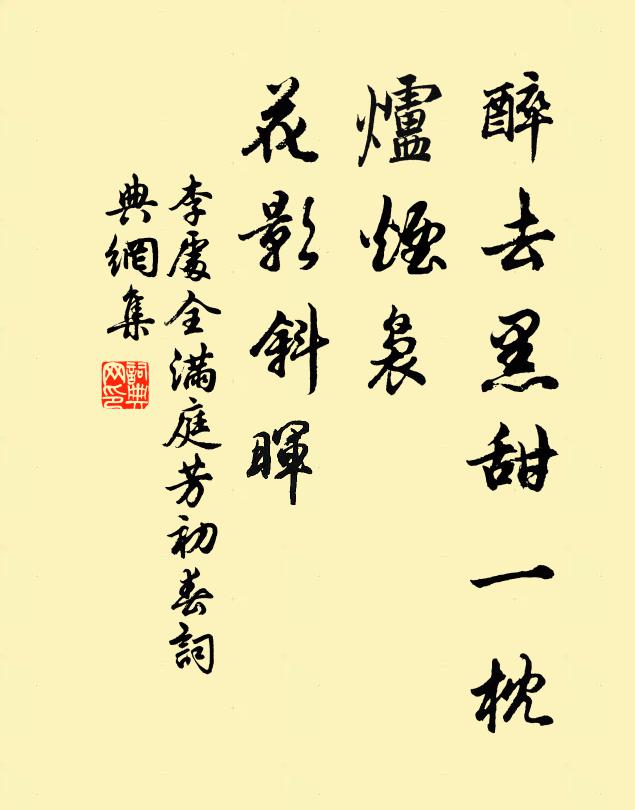 醉去黑甜一枕
爐煙裊
花影斜暉
李處全滿庭芳初春詞
典網集
詞典網印